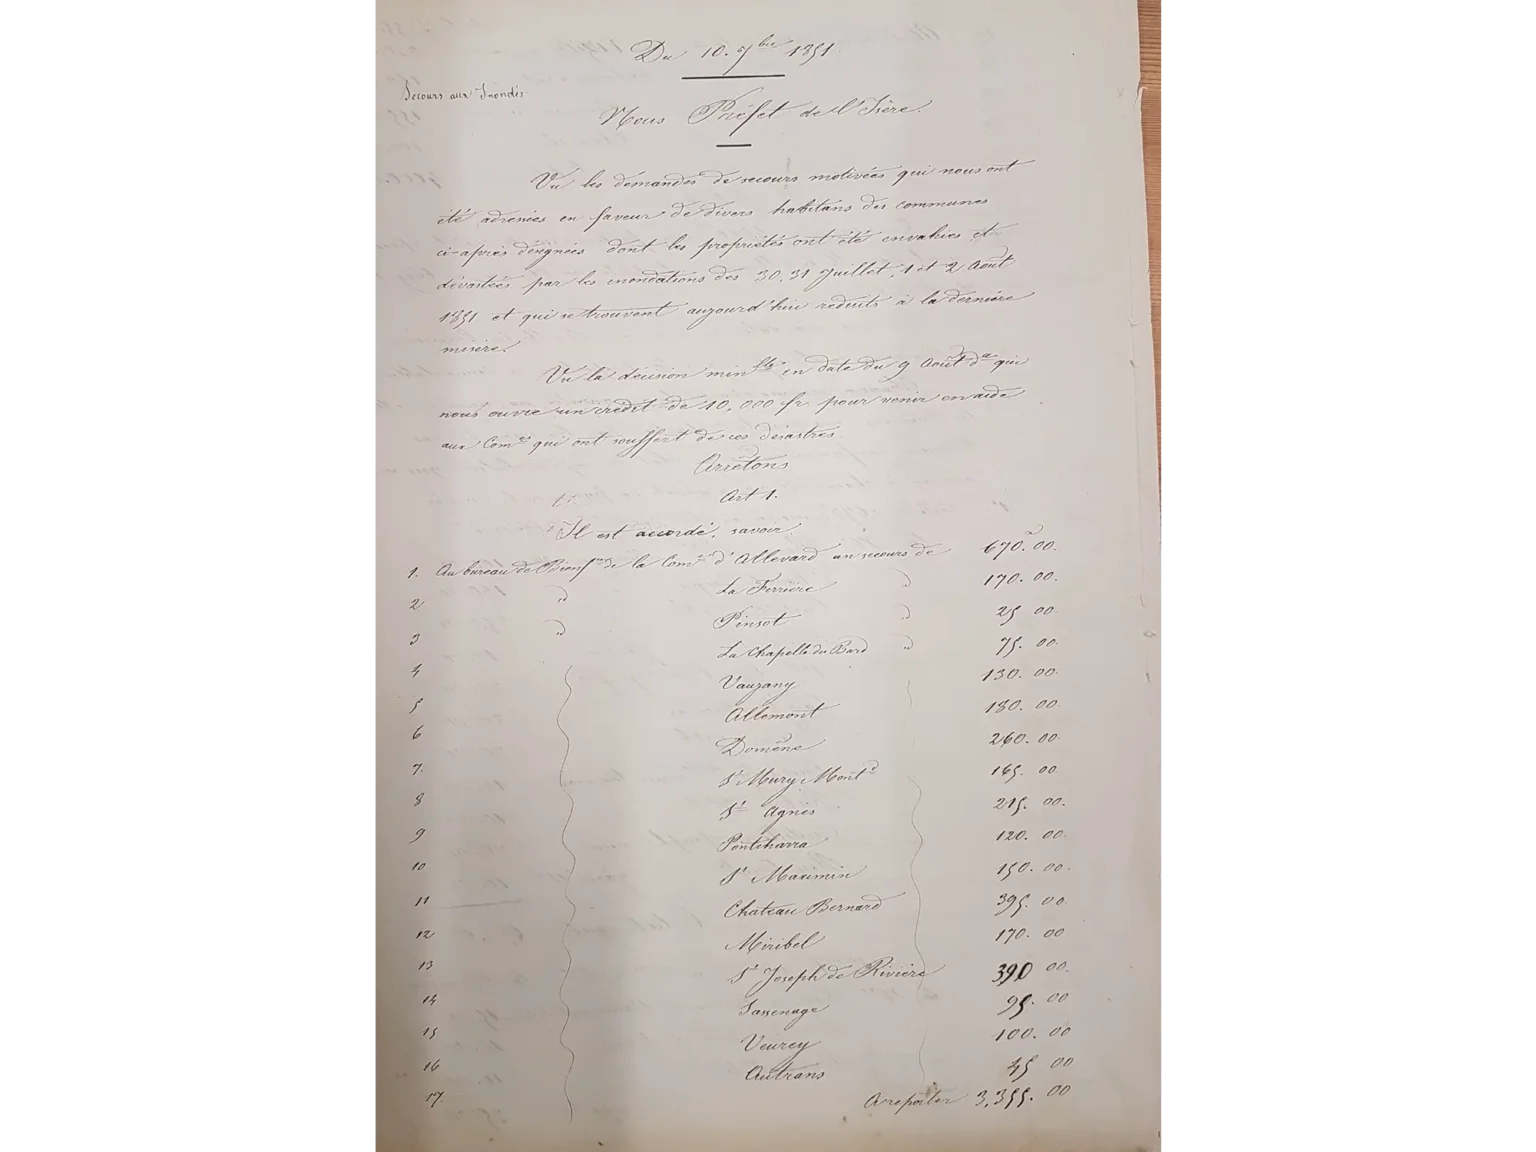 Du 10. 7bre 1851.
Secours aux Inondés
Nous Préfet de l'Isère.
Vu les demandes de secours motivées qui nous ont
été adressées en faveur de divers habitans des communes
ci-après désignées dont les propriétés ont été envahies et
dévastées par les inondations des 30, 31 Juillet, 1 et 2 Août
1851 et qui se trouvent aujourd'hui réduits à la dernière
misère.
Vu la décision minlle en date du 9 Août der qui
nous ouvre un crédit de 10,000 fr pour venir en aide
aux Comes qui ont souffert de ces désastres.
Arrêtons
Art 1.
Il est accordé, savoir.
1. Au bureau de Bienfce de la Come d'Allevard un secours de 670. 00.
2 " La Ferrière " 170. 00.
3 " Pinsot " 25 00.
4 La Chapelle du Bard " 75. 00.
5 Vaujany 130. 00.
6 Allemont 180. 00.
7. Domène 260. 00.
8 St Mury Montd 165. 00
9 Ste Agnès 215. 00.
10 Pontcharra 120. 00.
11 St Maximin 150. 00.
12 Chateau Bernard 395. 00.
13 Miribel 170. 00
14 St Joseph de Rivière 390 00.
15 Sassenage 95. 00
16 Veurey 100. 00
17. Autrans 45 00
A reporter 3,355. 00